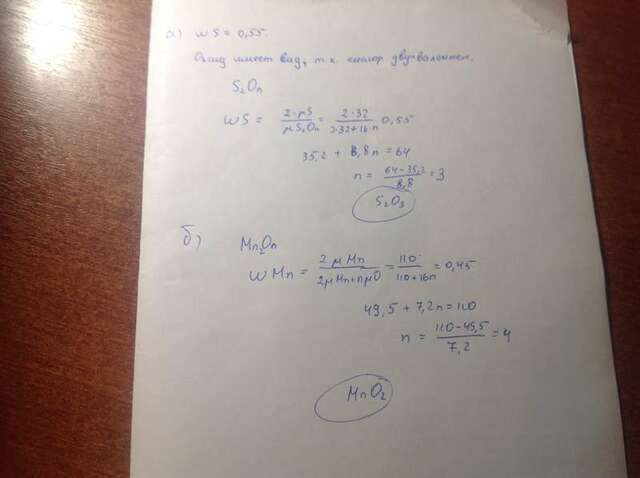 а) W S = 0,55.
Оксид имеет вид, т.к. кислор двухвалентен.
S₂Oₙ
WS = 2·μS / μS₂Oₙ = 2·32 / 2·32+16·n 0,55
35,2 + 8,8n = 64
n = 64-35,2 / 8,8 = 3
S₂O₃
б) Mn₂On
WMn = 2μMn / 2μMn+nμO = 110 / 110+16n = 0,45
49,5 + 7,2n = 110
n = 110-49,5 / 7,2 = 4
MnO₂